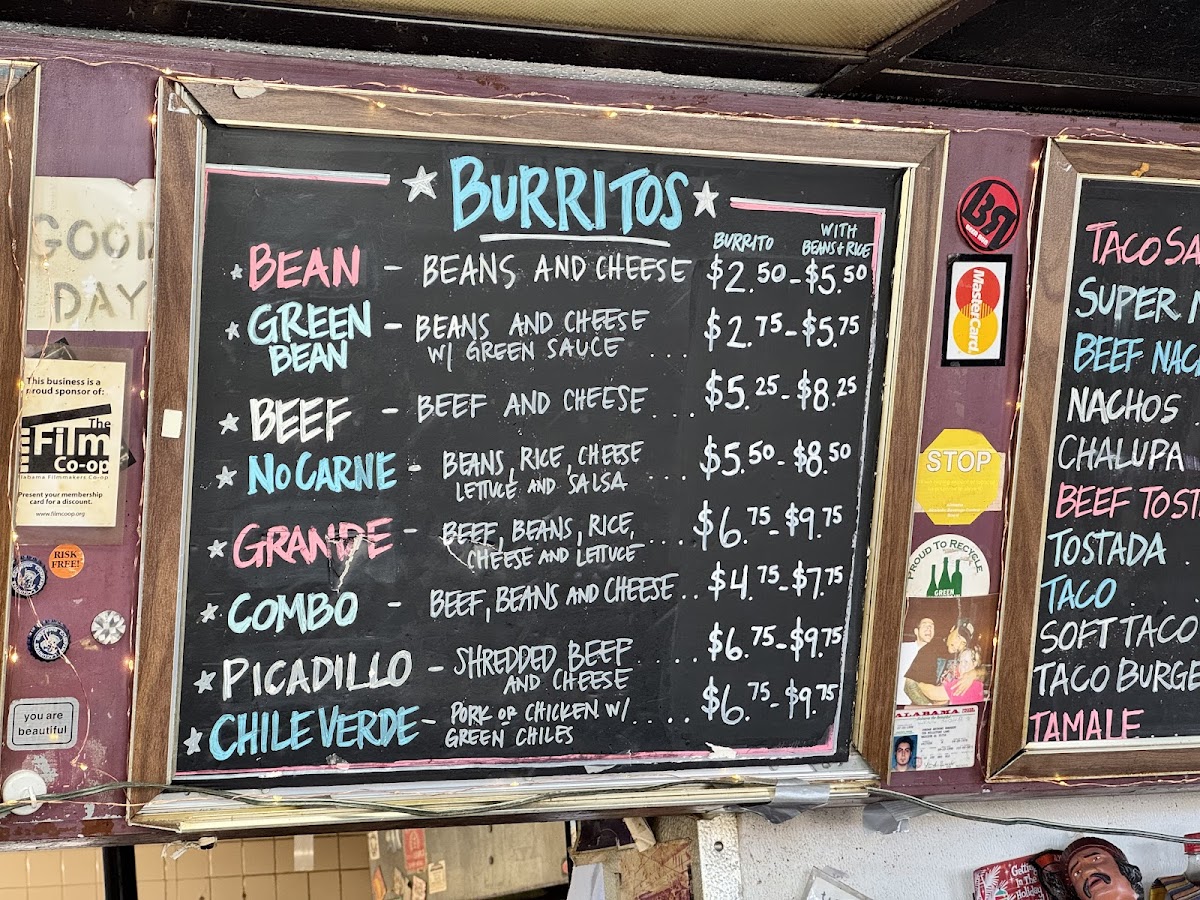 GOOD
DAY
This business is a
proud sponsor of:
The
Film
Co-op
Alabama Filmmakers Co-op
Present your membership
card for a discount.
www.filmcoop.org
RISK
FREE!
you are
beautiful
BURRITOS
BURRITO WITH
BEANS + RICE
BEAN - BEANS AND CHEESE $2.50 - $5.50
GREEN
BEAN - BEANS AND CHEESE
W/ GREEN SAUCE .... $2.75 - $5.75
BEEF - BEEF AND CHEESE .... $5.25 - $8.25
NO CARNE - BEANS, RICE, CHEESE
LETTUCE AND SALSA ... $5.50 - $8.50
GRANDE - BEEF, BEANS, RICE,
CHEESE AND LETTUCE ... $6.75 - $9.75
COMBO - BEEF, BEANS AND CHEESE .. $4.75 - $7.75
PICADILLO - SHREDDED BEEF
AND CHEESE ..... $6.75 - $9.75
CHILE VERDE - PORK OR CHICKEN W/
GREEN CHILES .... $6.75 - $9.75
MasterCard
STOP
PROUD TO RECYCLE
GREEN
ALABAMA
TACO SA
SUPER
BEEF NAC
NACHOS
CHALUPA
BEEF TOST
TOSTADA .
TACO . .
SOFT TACO
TACO BURGE
TAMALE
Getting
In The
Holiday